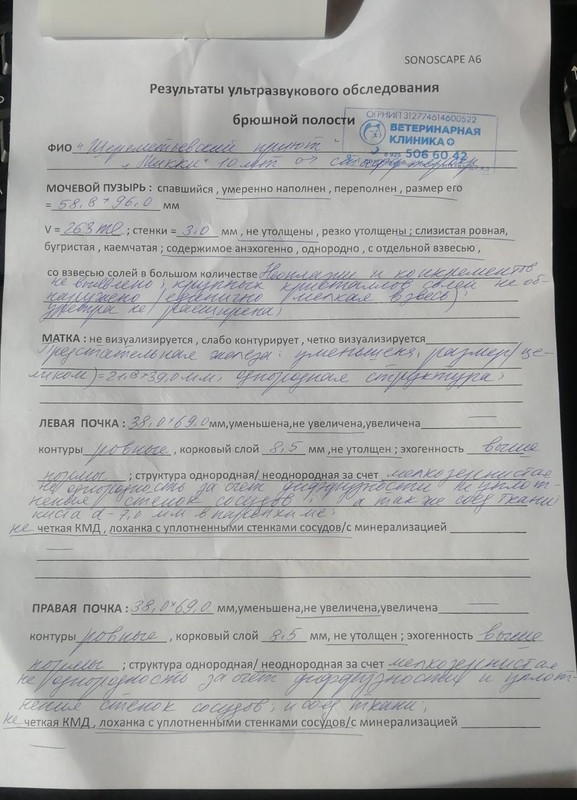 SONOSCAPE A6
Результаты ультразвукового обследования
брюшной полости
ОГРНИП 312774614600522
ВЕТЕРИНАРНАЯ
КЛИНИКА
506 60 42
ФИО "Шереметьевский приют"
"Микки" 10 лет от
МОЧЕВОЙ ПУЗЫРЬ : спавшийся , умеренно наполнен , переполнен , размер его
= 58,8 * 96,0 мм
V = 263 ml ; стенки = 3,0 мм , не утолщены , резко утолщены ; слизистая ровная,
бугристая , каемчатая ; содержимое анэхогенно , однородно , с отдельной взвесью ,
со взвесью солей в большом количестве Неоплазии и конкрементов
не выявлено ; крупных кристаллов солей не об-
наружено (единично мелкая взвесь) ;
уретра не расширена ;
МАТКА : не визуализируется , слабо контурирует , четко визуализируется
Предстательная железа : уменьшена, размер (це-
ликом) = 39,0 мм, однородная структура ;
ЛЕВАЯ ПОЧКА : 38,0*69,0 мм,уменьшена,не увеличена,увеличена
контуры ровные , корковый слой 8,5 мм ,не утолщен ; эхогенность выше
нормы ; структура однородная/ неоднородная за счет мелкозернистая
неоднородность за счет диффузности и уплот-
нения стенок сосудов , а также соед ткани
киста d - 7,0 мм в паренхиме ;
не четкая КМД , лоханка с уплотненными стенками сосудов/с минерализацией
ПРАВАЯ ПОЧКА : 38,0*69,0 мм,уменьшена,не увеличена,увеличена
контуры ровные , корковый слой 8,5 мм, не утолщен ; эхогенность выше
нормы ; структура однородная/ неоднородная за счет мелкозернистая
неоднородность за счет диффузности и уплот-
нения стенок сосудов, и соед ткани,
не четкая КМД , лоханка с уплотненными стенками сосудов/с минерализацией